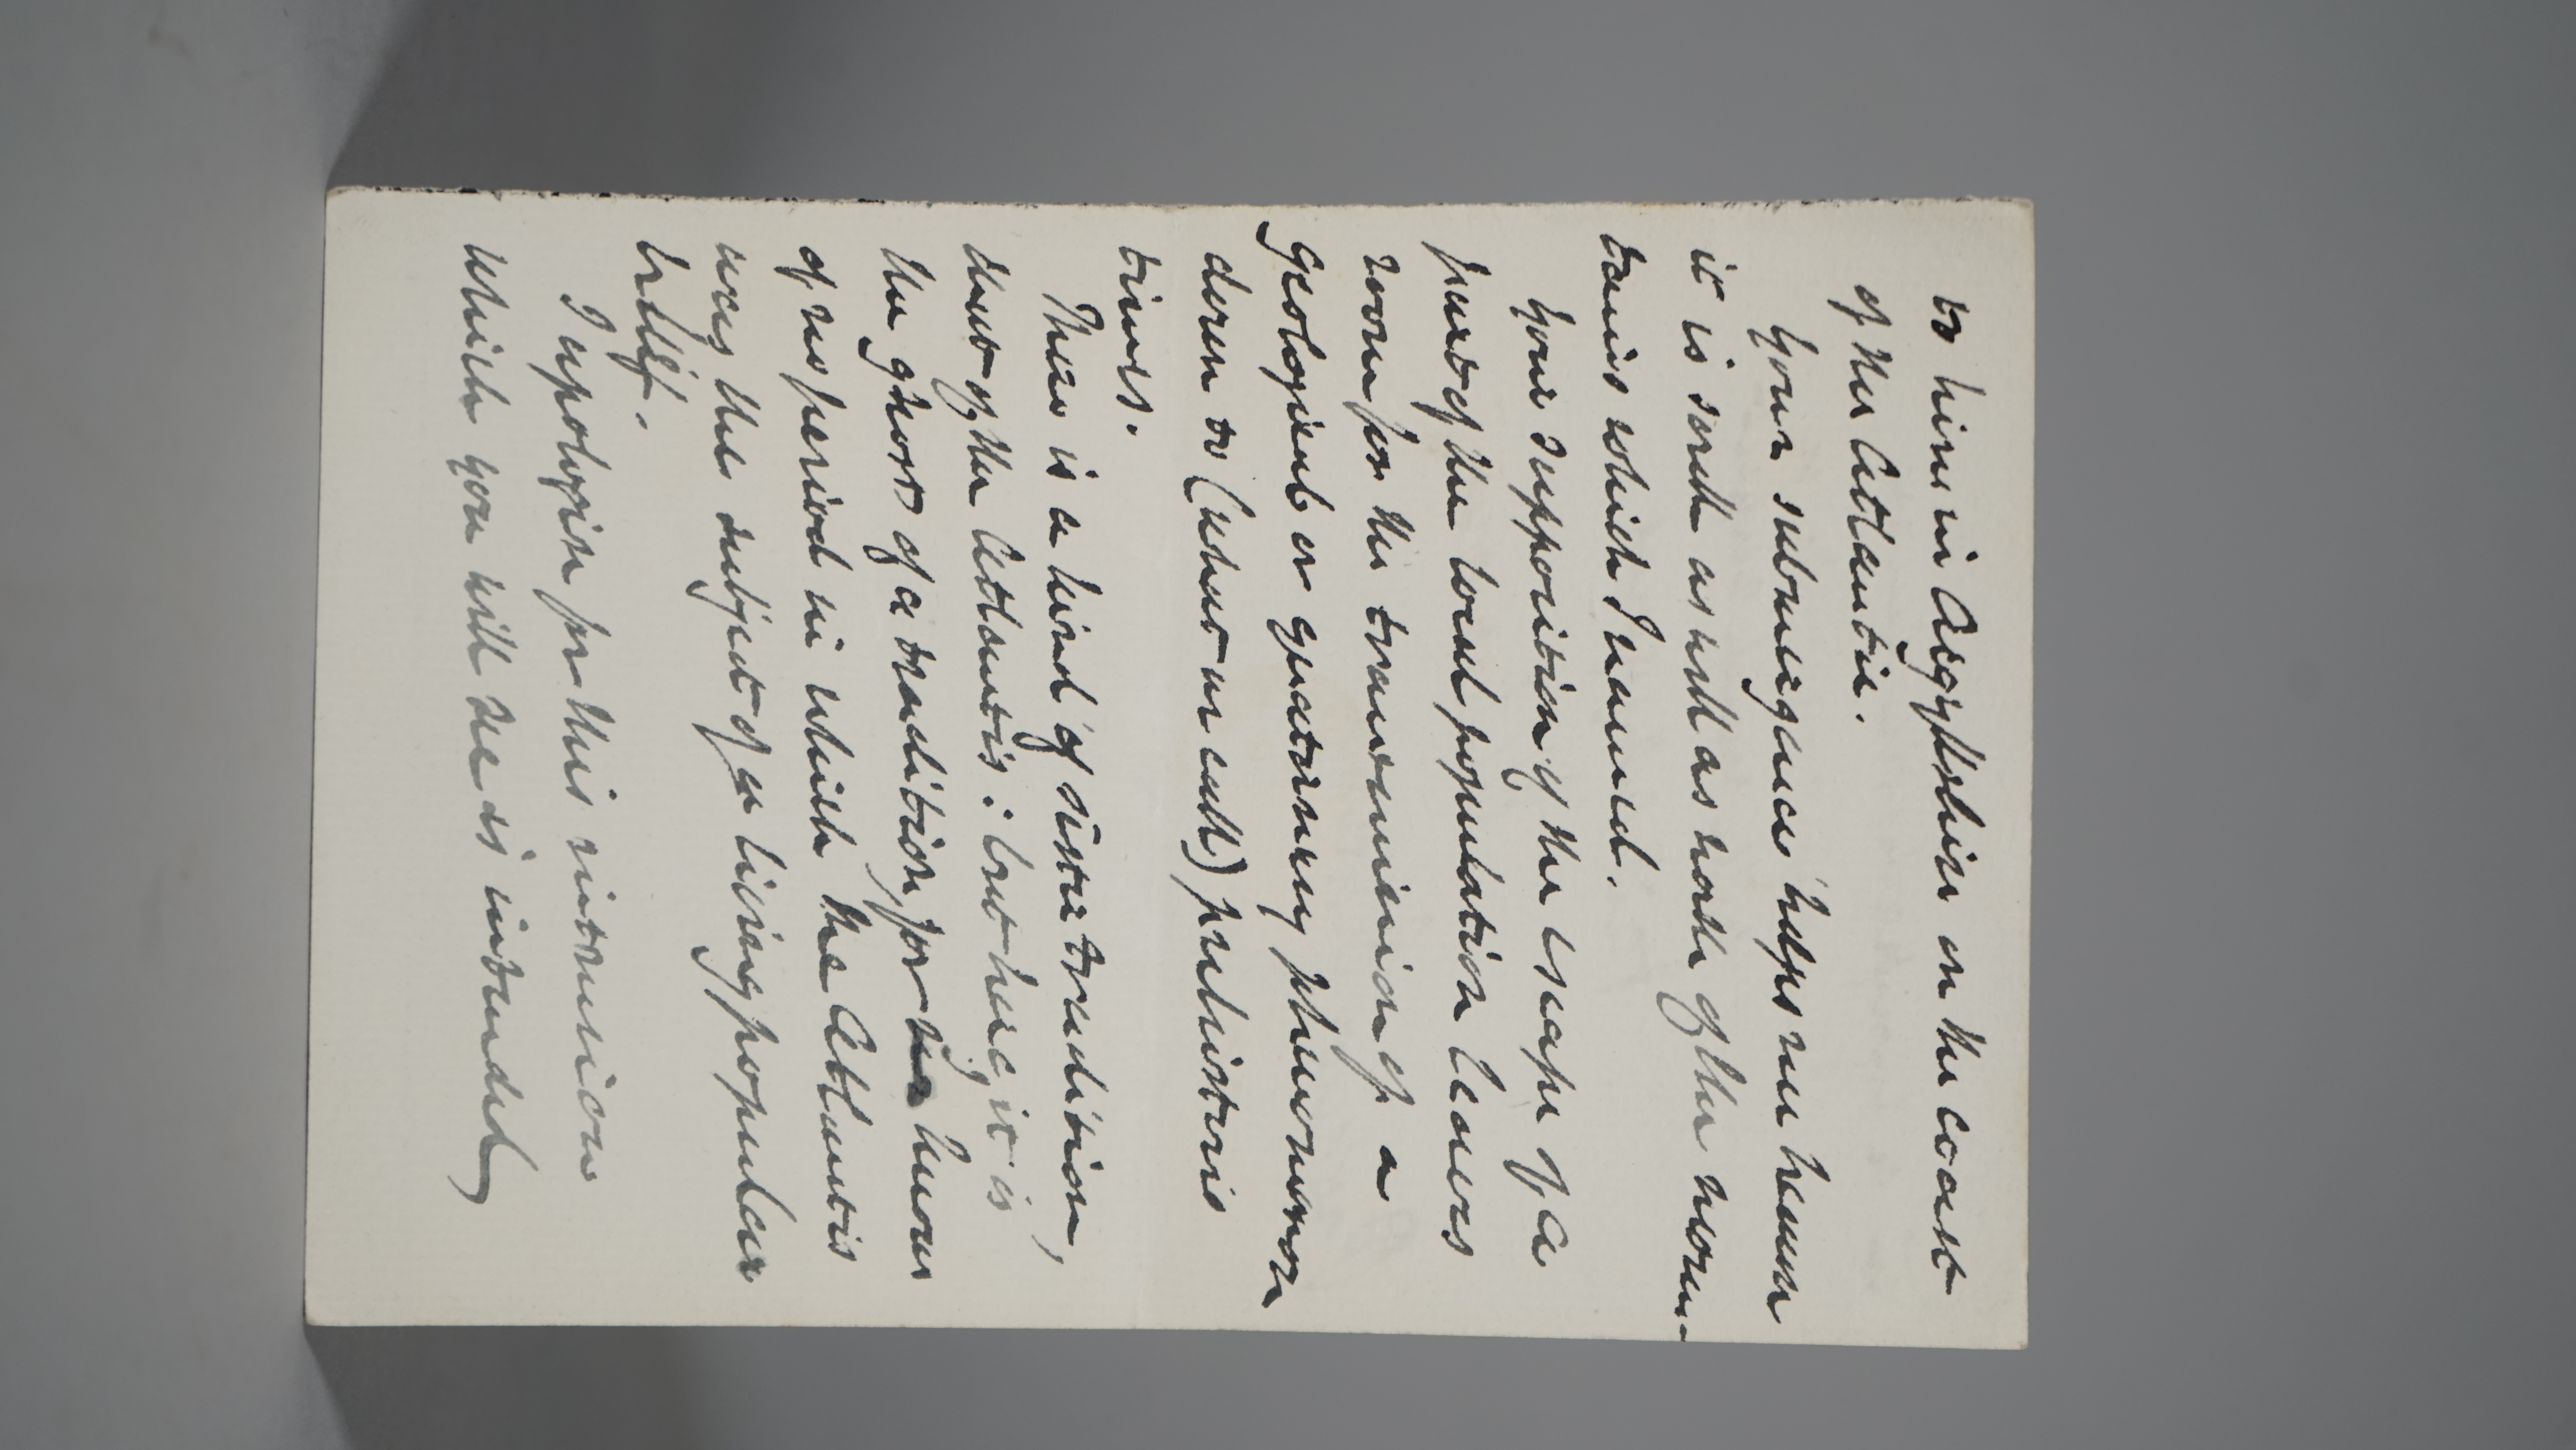 to him in Argyllshire on the coast
of the Atlantic.
Your submergence helps me hence
it is south as well as north of the moun-
tains which I named.
Your supposition of the escape of a
part of the local population leaves
room for the transmission of a
geological or quaternary phenomenon
down to (what we call) prehistoric
times.
There is a kind of sister tradition,
that of the Atlantis: but here, it is
the ghost of a tradition, for we know
of no period in which the Atlantis
was the subject of a living popular
belief.
I apologise for this intrusion
which you will see is intended